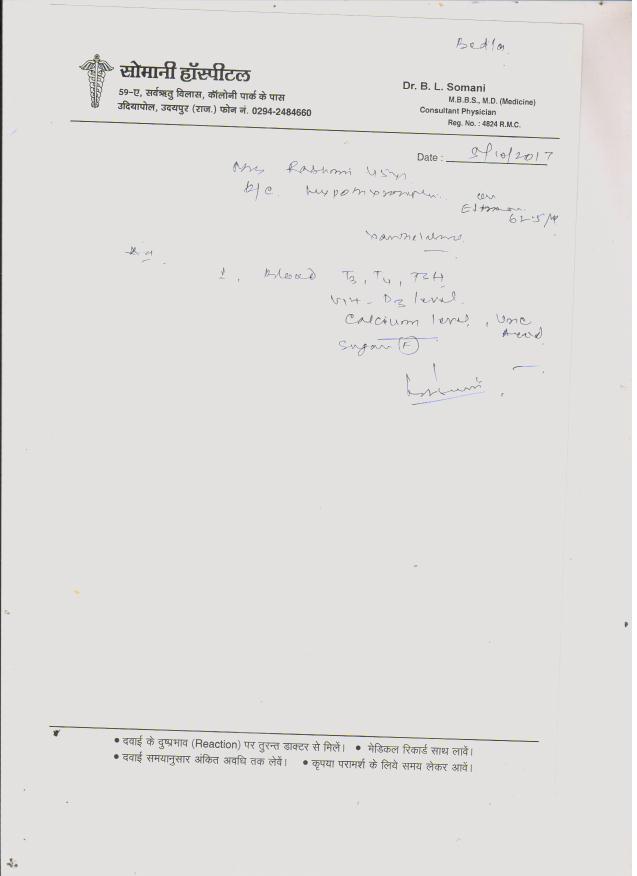 Bedla
सोमानी हॉस्पीटल
59-ए, सर्वऋतु विलास, कॉलोनी पार्क के पास
उदियापोल, उदयपुर (राज.) फोन नं. 0294-2484660
Dr. B. L. Somani
M.B.B.S., M.D. (Medicine)
Consultant Physician
Reg. No. : 4824 R.M.C.
Date : 9/10/2017
Mrs Rashmi 45yr
on
62.5/
1. Blood T3, T4, TSH
Vit - D3 level.
Calcium level, Uric
Acid
Sugar (F)
• दवाई के दुष्प्रभाव (Reaction) पर तुरन्त डाक्टर से मिलें। • मेडिकल रिकार्ड साथ लावें।
• दवाई समयानुसार अंकित अवधि तक लेवें। • कृपया परामर्श के लिये समय लेकर आवें।